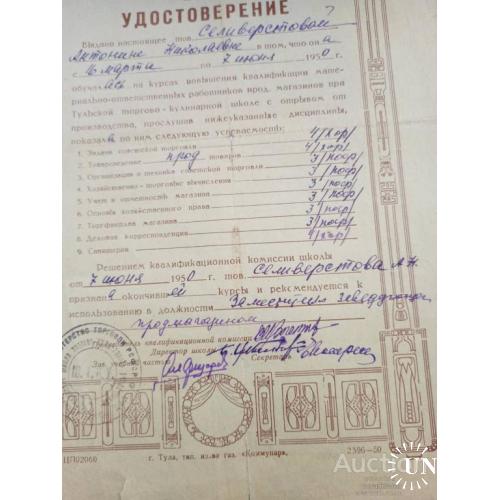 УДОСТОВЕРЕНИЕ
Выдано настоящее тов. Селиверстовой
Антонине Николаевне в том, что она
с 16 марта по 7 июня 1950 г.
обучалась на курсах повышения квалификации мате-
риально-ответственных работников прод. магазинов при
Тульской торгово-кулинарной школе с отрывом от
производства, прослушав нижеуказанные дисциплины,
показала по ним следующую успеваемость:
1. Задачи советской торговли 4/хор/
2. Товароведение прод товаров 4/хор/
3. Организация и техника советской торговли 3/поср/
4. Хозяйственно-торговые вычисления 3/поср/
5. Учет и отчетность магазина 3/поср/
6. Основы хозяйственного права 3/поср/
7. Торфинплан магазина 3/поср/
8. Деловая корреспонденция 3/поср/
9. Санитария 4/хор/
Решением квалификационной комиссии школы
от 7 июня 1950 г. тов. Селиверстова А.Н.
признана окончившей курсы и рекомендуется к
использованию в должности Заместителя заведующего
продмагазином
квалификационной комиссии
Директор школы
Зав. учебной частью
Секретарь
ЦП02060
г. Тула, тип. изд-ва газ. «Коммунар».
2396-50
UN